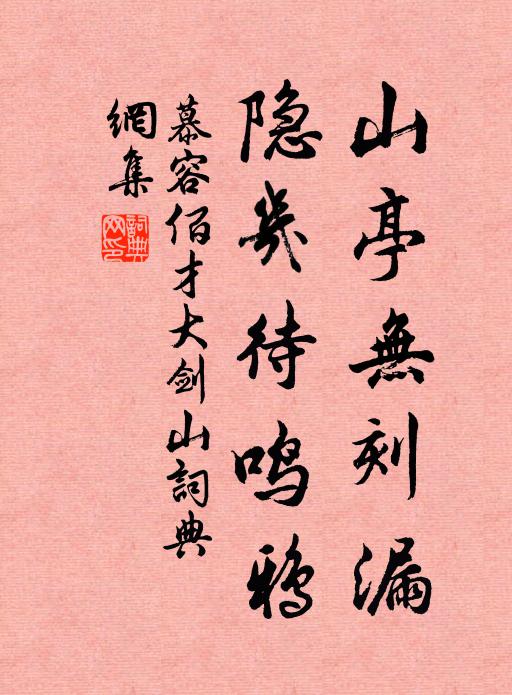 山亭無刻漏
隐幾待鸣鴉
慕容佰才大剑山詞典
網集
詞典
网印